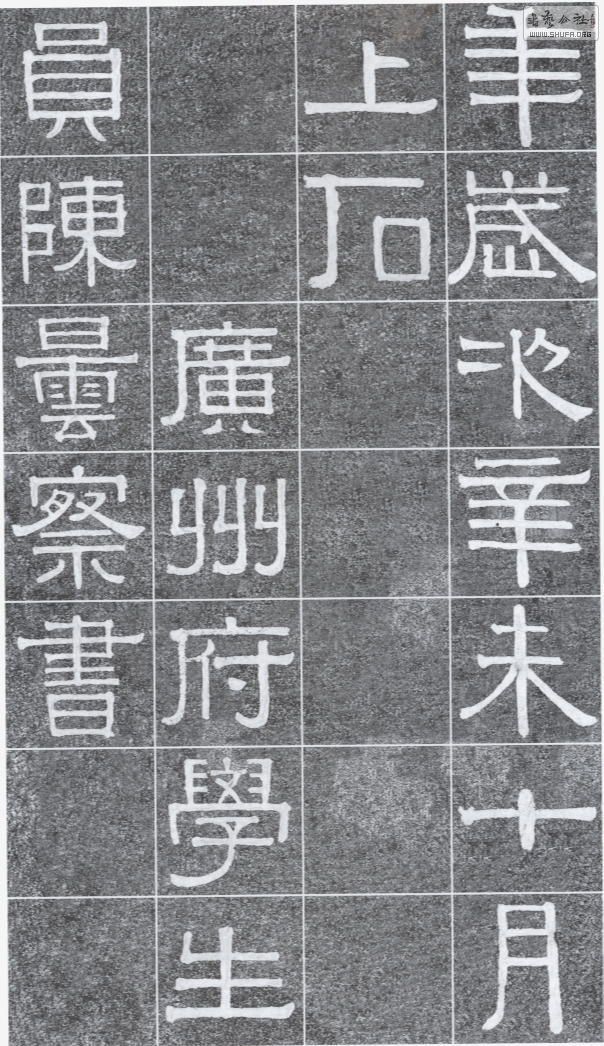 年歲次辛未十月
上石
廣州府學生
員陳曇察書
書藝公社
WWW.SHUFA.ORG